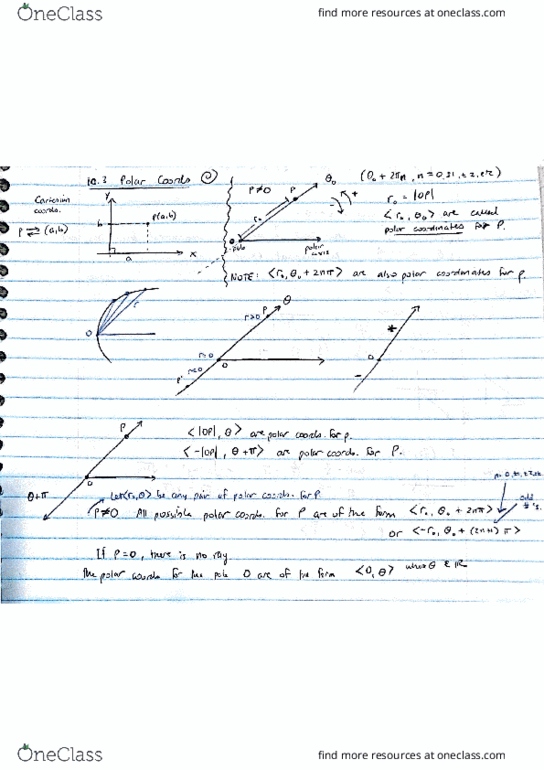 OneClass
find more resources at oneclass.com
10.3 Polar Coords
Cartesian coords.
P ⇌ (a,b)
y
b
P(a,b)
a
x
P≠0
P
θ₀
r₀
O
pole
polar axis
+
-
(θ₀ + 2πn, n = 0, ±1, ±2, etc)
r₀ = |OP|
<r₀, θ₀> are called
polar coordinates for P.
NOTE: <r₀, θ₀ + 2nπ> are also polar coordinates for P
O
r
θ
P
r>0
r=0
r<0
P'
O
*
O
-
P
O
θ+π
<|OP|, θ> are polar coords. for P.
<-|OP|, θ+π> are polar coords. for P.
Let <r₀, θ₀> be any pair of polar coords. for P
n = 0, ±1, ±2, etc
P≠0 All possible polar coords. for P are of the form <r₀, θ₀ + 2nπ>
odd #'s.
or <-r₀, θ₀ + (2n+1)π>
If P=0, there is no ray
The polar coords for the pole O are of the form <0, θ> where θ ∈ ℝ
OneClass
find more resources at oneclass.com